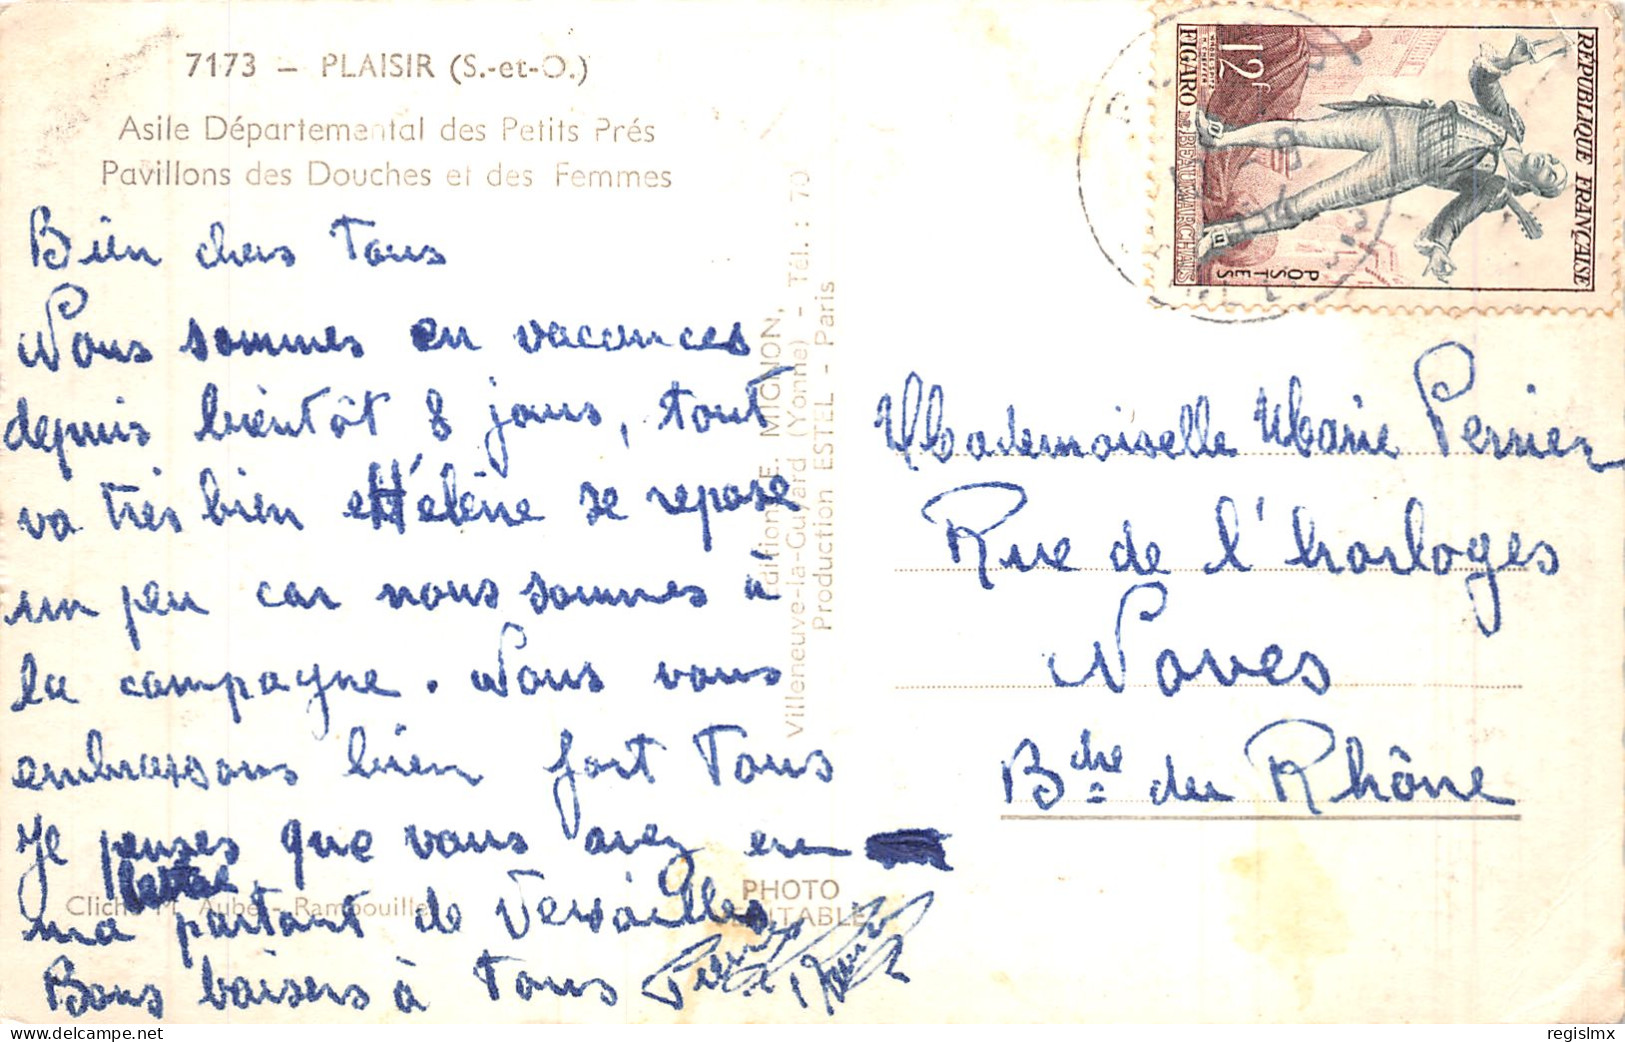 7173 — PLAISIR (S.-et-O.)
Asile Départemental des Petits Prés
Pavillons des Douches et des Femmes
Bien chers Tous
Nous sommes en vacances
depuis bientôt 8 jours, tout
va très bien et Hélène se repose
un peu car nous sommes à
la campagne. Nous vous
embrassons bien fort Tous
Je penses que vous avez eu
lettre
ma partant de Versailles
Bons baisers à Tous Pierre
Editions E. MIGNON,
Villeneuve-la-Guyard (Yonne) - Tél. : 70
Production ESTEL - Paris
Cliché M. Aubel - Rambouillet
PHOTO
VERITABLE
REPUBLIQUE FRANÇAISE
POSTES
12f
FIGARO DE BEAUMARCHAIS
Mademoiselle Marie Perrier
Rue de l'horloges
Noves
Bche du Rhône
www.delcampe.net
regislmx